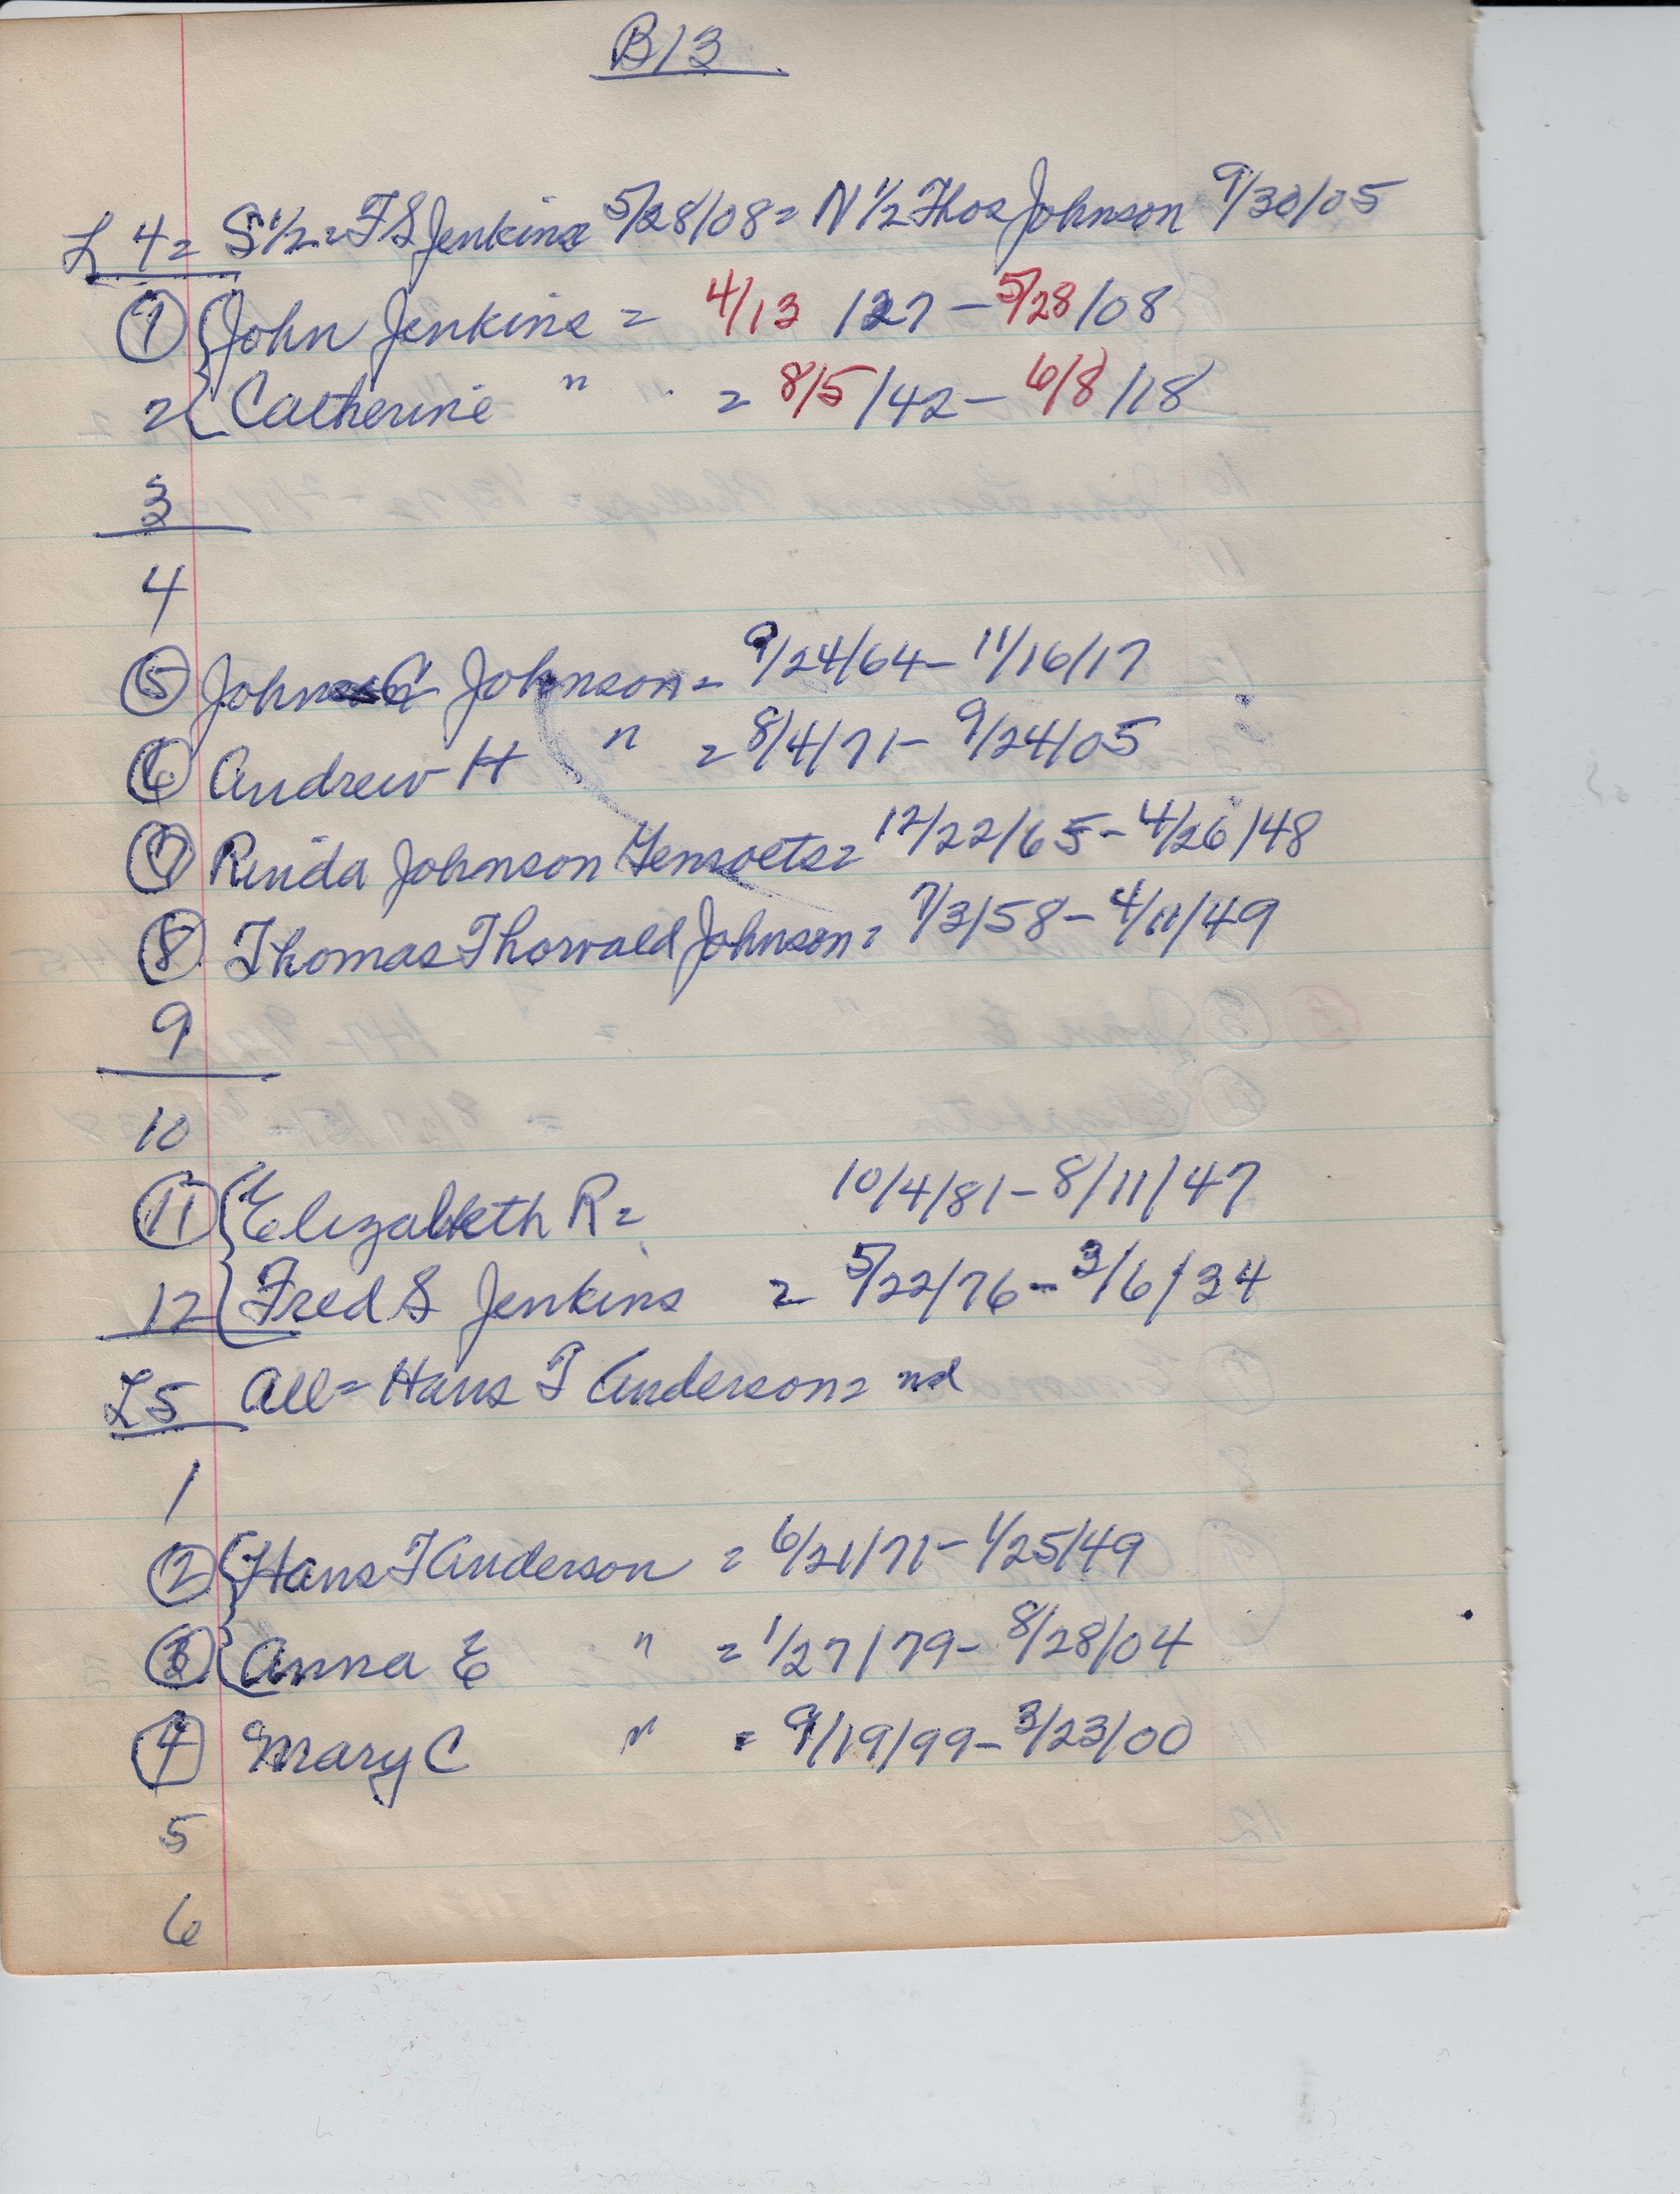 B13
L 4 = S 1/2 = F S Jenkins 5/28/08 = N 1/2 Thos Johnson 9/30/05
1 { John Jenkins = 4/13 /27 - 5/28/08
2 { Catherine " = 8/5/42 - 6/8/18
3
4
5 John Johnson = 9/24/64 - 11/16/17
6 Andrew H " = 8/4/71 - 9/24/05
7 Rinda Johnson = 12/22/65 - 4/26/48
8 Thomas Thorvald Johnson = 7/3/58 - 4/11/49
9
10
11 { Elizabeth R = 10/4/81 - 8/11/47
12 { Fred S Jenkins = 5/22/76 - 3/6/34
L5 All = Hans T Anderson = nd
1
2 { Hans T Anderson = 6/21/71 - 1/25/49
3 { Anna E " = 1/27/79 - 8/28/04
4 Mary C " = 9/19/99 - 3/23/00
5
6